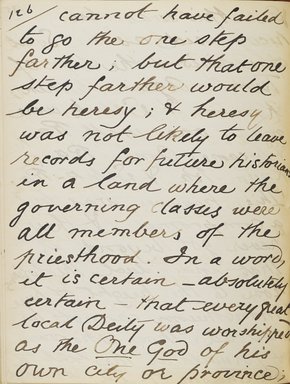 126/ cannot have failed
to go the one step
farther; but that one
step farther would
be heresy; & heresy
was not likely to leave
records for future historians
in a land where the
governing classes were
all members of the
priesthood. In a word,
it is certain - absolutely
certain - that every great
local Deity was worshipped
as the One God of his
own city or province;